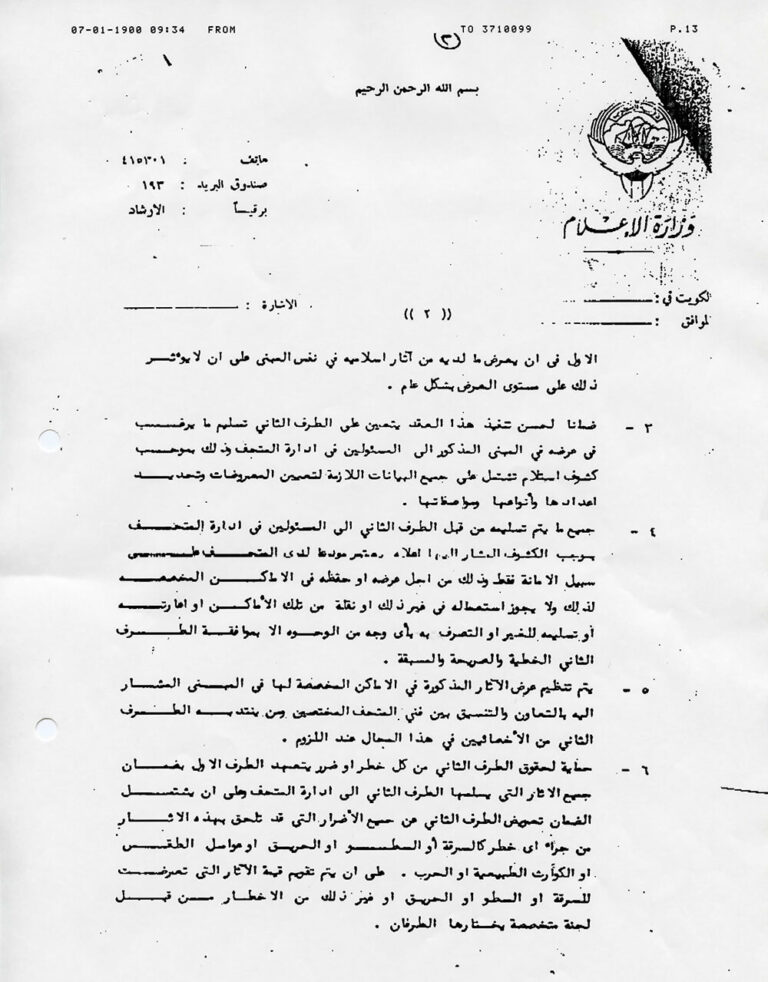 07-01-1900 09:34 FROM TO 3710099 P.13
(٢)
بسم الله الرحمن الرحيم
هاتف : ٤١٥٣٠١
صندوق البريد : ١٩٣
برقيـاً : الارشاد
وزارة الإعلام
لكويت في :
الاشارة :
(( ٢ ))
لموافق :
الاول فى ان يعرض ما لديه من آثار اسلاميه في نفس المبنى على ان لا يؤثـر
ذلك على مستوى العرض بشكل عام .
٣ - ضمانا لحسن تنفيذ هذا العقد يتعين على الطرف الثاني تسليم ما يرغـب
فى عرضه في المبنى المذكور الى المسئولين فى ادارة المتحف وذلك بموجـب
كشوف استلام تشتمل على جميع البيانات اللازمة لتعيين المعروضات وتحديـد
اعدادها وأنواعها ومواصفاتها .
٤ - جميع ما يتم تسليمه من قبل الطرف الثاني الى المسئولين فى ادارة المتحـف
بموجب الكشوف المشار اليها اعلاه يعتبر مودعا لدى المتحـف علـى
سبيل الامانة فقط وذلك من اجل عرضه او حفظه فى الاماكـن المخصصه
لذلك ولا يجوز استعماله في غير ذلك او نقلة من تلك الأماكـن او اعارتـه
أو تسليمه للغير او التصرف به بأى وجه من الوجوه الا بموافقـة الطـرف
الثاني الخطية والصريحة والمسبقة .
٥ - يتم تنظيم عرض الآثار المذكورة في الاماكن المخصصة لها في المبـنى المشـار
اليه بالتعاون والتنسيق بين فني المتحف المختصين ومن ينتدبـه الطـرف
الثاني من الأخصائيين في هذا المجال عند اللزوم .
٦ - حماية لحقوق الطرف الثاني من كل خطر او ضرر يتعهد الطرف الاول بضمـان
جميع الاثار التي يسلمها الطرف الثاني الى ادارة المتحف وعلى ان يشتمـل
الضمان تعويض الطرف الثاني عن جميع الأضرار التي قد تلحق بهذه الاثـار
من جراء اى خطر كالسرقة أو السطـو او الحريـق او عوامل الطقـس
او الكوارث الطبيعية او الحرب . على ان يتم تقويم قيمة الآثار التى تعرضـت
للسرقة او السطو او الحريق او غير ذلك من الاخطار مـن قبـل
لجنة متخصصة يختارها الطرفان .